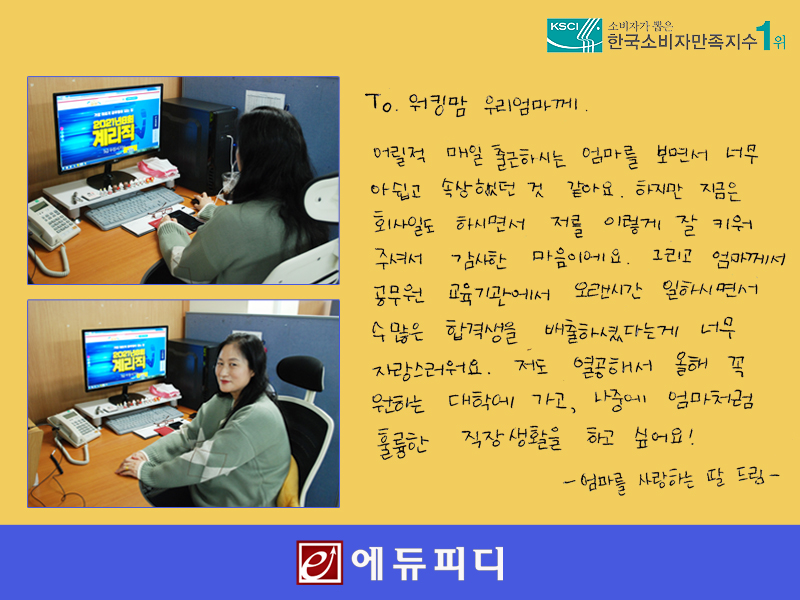 KSCI 소비자가 뽑은
한국소비자만족지수 1위
2021년 8회
계리직
To. 워킹맘 우리엄마께.
어릴적 매일 출근하시는 엄마를 보면서 너무
아쉽고 속상했던 것 같아요. 하지만 지금은
회사일도 하시면서 저를 이렇게 잘 키워
주셔서 감사한 마음이에요. 그리고 엄마께서
공무원 교육기관에서 오랜시간 일하시면서
수많은 합격생을 배출하셨다는게 너무
자랑스러워요. 저도 열공해서 올해 꼭
원하는 대학에 가고, 나중에 엄마처럼
훌륭한 직장생활을 하고 싶어요!
-엄마를 사랑하는 딸 드림-
2021년 8회
계리직
e 에듀피디